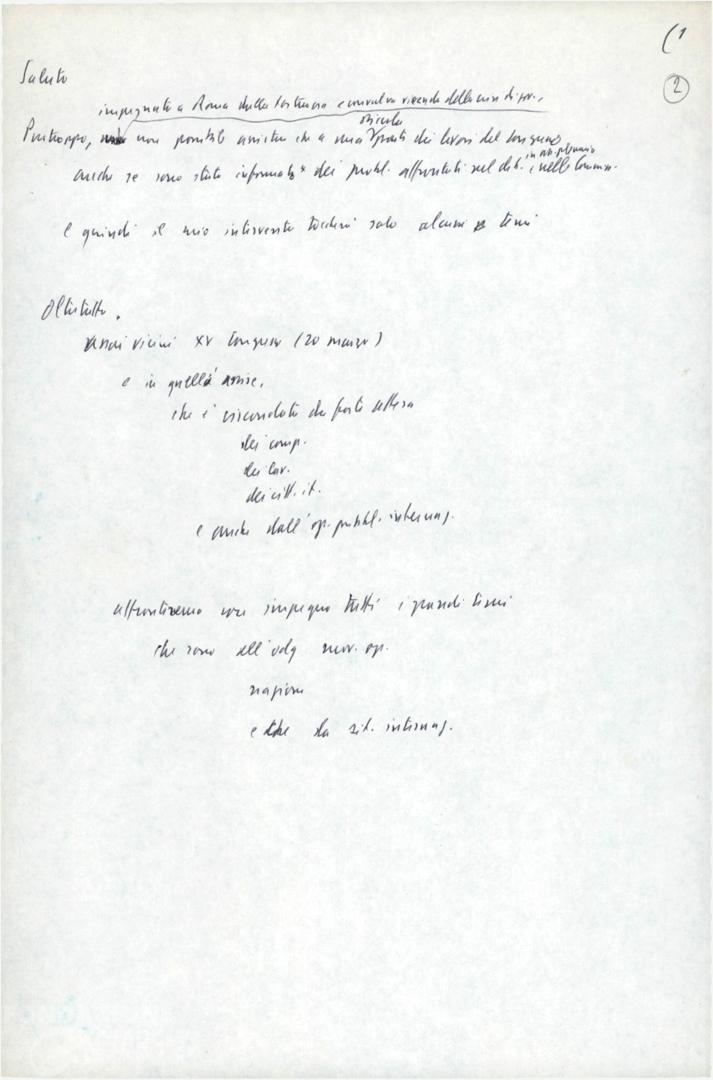 (1
2
Saluto
impegnato a Roma dalla tortuosa e convulsa vicenda della crisi di gov.,
piccola
Purtroppo, non possibile assistere che a una parte dei lavori del Congresso
in ass. plenaria
anche se sono stato informato dei probl. affrontati nel dib. e nelle Commiss.
e quindi il mio intervento toccherà solo alcuni temi
Oltretutto,
assai vicini XV Congresso (20 marzo)
e in quella assise,
che è circondata da forte attesa
dei comp.
dei lav.
dei citt. it.
e anche dall'op. pubbl. internaz.
affronteremo con impegno tutti i grandi temi
che sono all'odg mov. op.
nazione
e della sit. internaz.